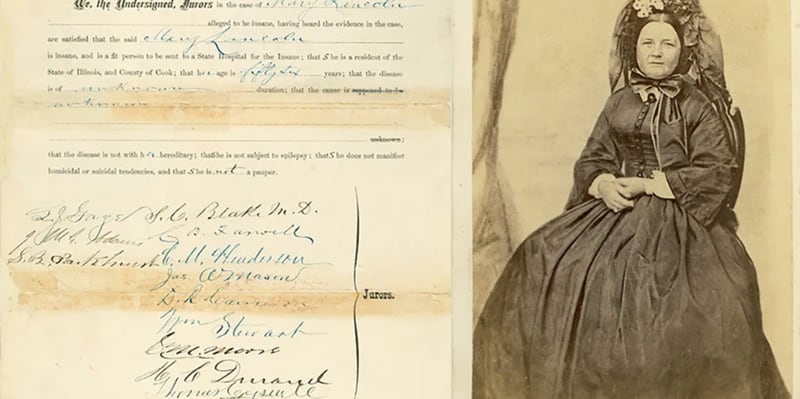 We, the Undersigned, Jurors in the case of Mary Lincoln
alleged to be insane, having heard the evidence in the case,
are satisfied that the said Mary Lincoln
is insane, and is a fit person to be sent to a State Hospital for the Insane; that She is a resident of the
State of Illinois, and County of Cook; that her age is fifty six years; that the disease
is of unknown duration; that the cause is supposed to be
unknown
unknown;
that the disease is not with her hereditary; that She is not subject to epilepsy; that She does not manifest
homicidal or suicidal tendencies, and that She is not a pauper.
L. J. Gage S. C. Blake M.D.
C. B. Farwell
S. B. Parkhurst C. M. Henderson
Jas. A Mason
Jurors.
Wm Stewart
E. M. Moore
H. C. Durand